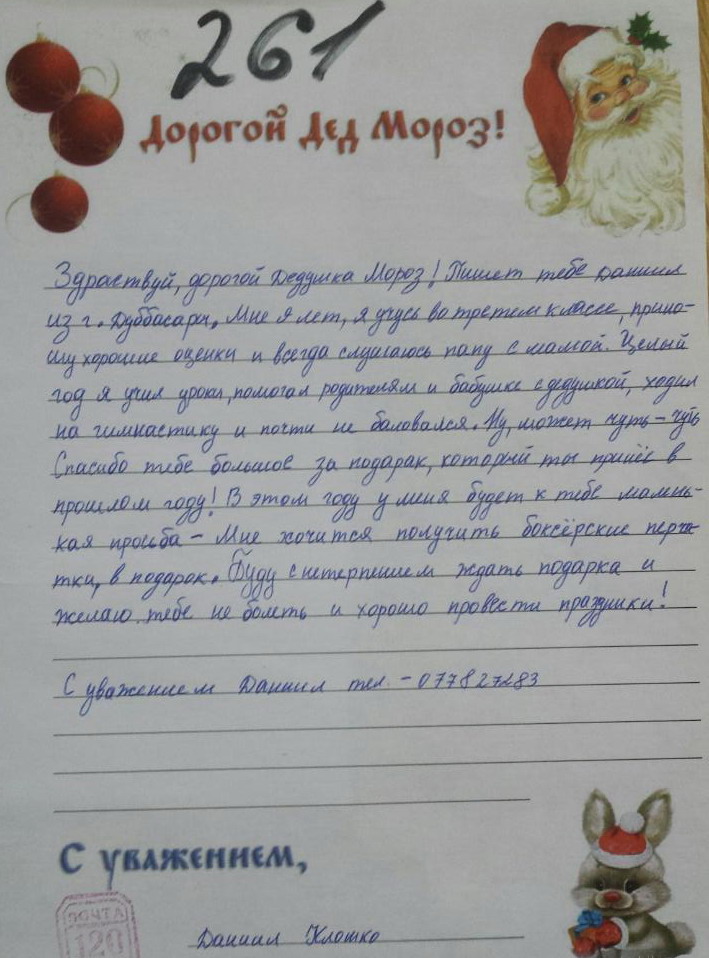 261
Дорогой Дед Мороз!
Здраствуй, дорогой Дедушка Мороз! Пишет тебе Даниил
из г. Дуббасари. Мне 9 лет, я учусь во третем классе, прино-
шу хорошие оценки и всегда слушаюсь папу с мамой. Целый
год я учил уроки, помогал родителям и бабушке с дедушкой, ходил
на гимнастику и почти не баловался. Ну, может чуть-чуть
Спасибо тебе большое за подарак, который ты принёс в
прошлом году! В этом году у миня будет к тебе мален-
кая прозьба - Мне хочится получить боксёрские перча-
тки, в подарок. Буду с нетерпением ждать подарка и
желаю тебе не болеть и хорошо провести праздники!
С уважением Даниил тел. - 077827283
С уважением,
ПОЧТА
120
Даниил Клошко